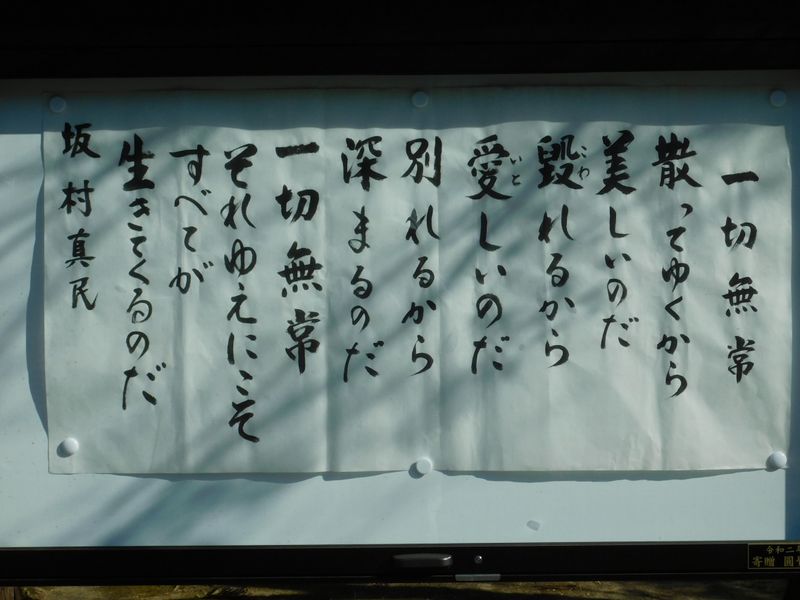 一切無常
散ってゆくから
美しいのだ
毀れるから
こわ
愛しいのだ
いと
別れるから
深まるのだ
一切無常
それゆえにこそ
すべてが
生きてくるのだ
坂村真民
令和二年
寄贈 圓